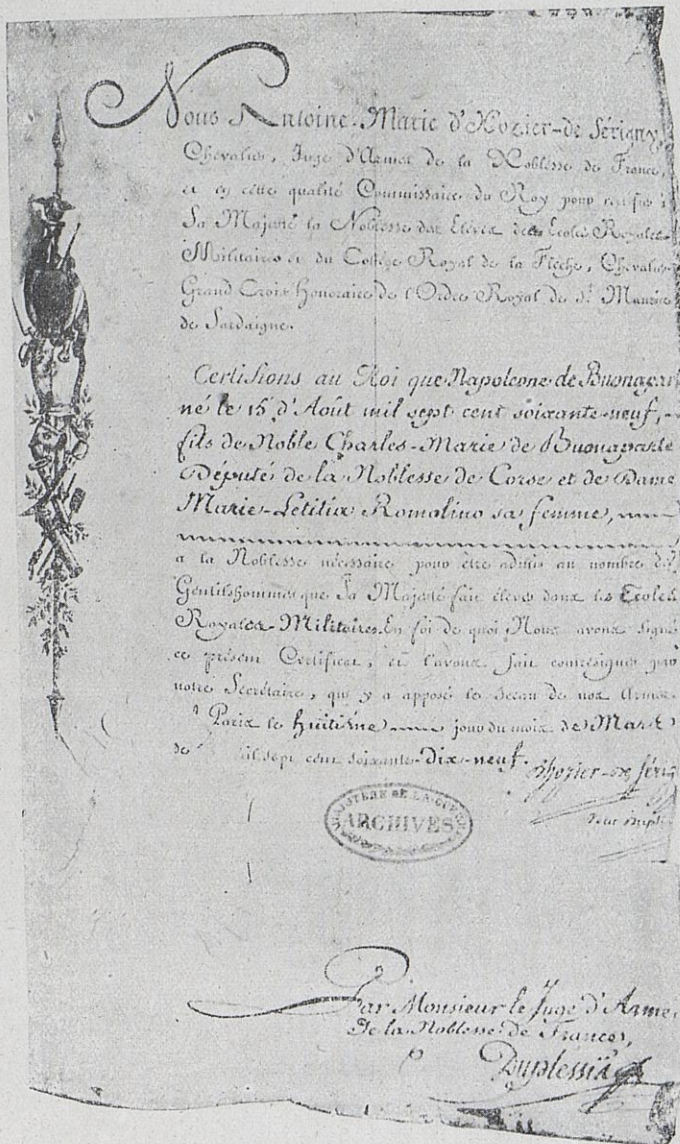 Nous Antoine-Marie d'Hozier-de Sérigny,
Chevalier, Juge d'Armes de la Noblesse de France,
et en cette qualité Commissaire du Roy pour certifier à
Sa Majesté la Noblesse des Elèves des Ecoles Royales-
Militaires et du Collège Royal de la Flèche, Chevalier
Grand-Croix Honoraire de l'Ordre Royal de St. Maurice
de Sardaigne.
Certifions au Roi que Napoleone de Buonapar
né le 15 d'Août mil sept cent soixante-neuf,
fils de Noble Charles-Marie de Buonaparte
Député de la Noblesse de Corse et de Dame
Marie-Letitia Romolino sa femme,
a la Noblesse nécessaire pour être admis au nombre de
Gentilshommes que Sa Majesté fait élever dans les Ecoles
Royales-Militaires. En foi de quoi Nous avons signé
ce présent Certificat, et l'avons fait contresigner par
notre Secrétaire, qui y a apposé le Sceau de nos Armes
à Paris le huitième jour du mois de Mars
de mil sept cent soixante-Dix-neuf.
d'hozier-de Séri
MINISTERE DE LA GUERRE
ARCHIVES
Par Monsieur le Juge d'Armes
De la Noblesse de France,
Duplessis